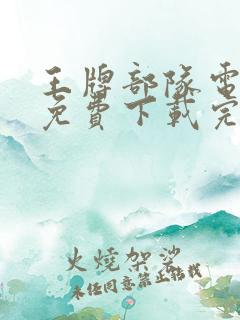 王牌部隊電
免費下載完
火燒架娑
未經同意禁止轉載